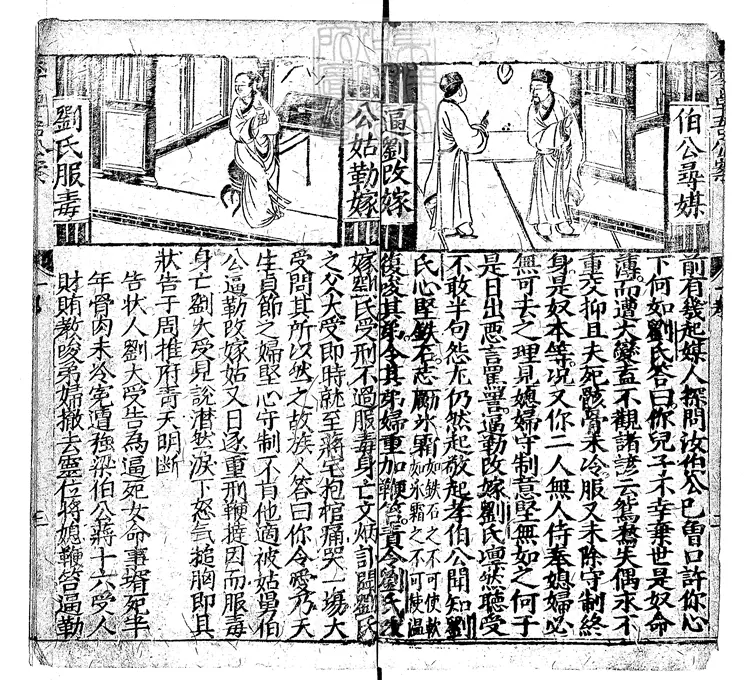 伯公尋媒
逼劉改嫁
前有幾起媒人探問汝伯公已曾口許你心
下何如劉氏答曰你兒子不幸棄世是奴命
薄而遭大變盍不觀諸諺云鴛鴦失偶永不
重交抑且夫死骸骨未冷服又未除守制終
身是奴本等況又你二人無人侍奉媳婦必
無可去之理見媳婦守制意堅無如之何于
是日出惡言罵詈逼勒改嫁劉氏然聽受
不敢半句怨尤仍然起敬起孝伯公聞知劉
氏心堅鉄石志勵氷霜如鉄石之不可使軟如氷霜之不可使温
復唆其弟令其弟婦重加鞭笞責令劉氏改
公姑勒嫁
劉氏服毒
嫁劉氏受刑不過服毒身亡文炳訃聞劉氏
之父大受即時就至蔣宅抱棺痛哭一塲大
受問其所以然之故族人答曰你令愛乃天
生貞節之婦堅心守制不肯他適被姑舅伯
公逼勒改嫁姑又日逐重刑鞭撻因而服毒
身亡劉大受見説潸然淚下怒氣搥胸即具
狀告于周推府青天明斷
告狀人劉大受告為逼死女命事壻死半
年骨肉未冷冤遭強梁伯公蔣十六受人
財賄教唆弟婦撤去靈位將媳鞭笞逼勒
三